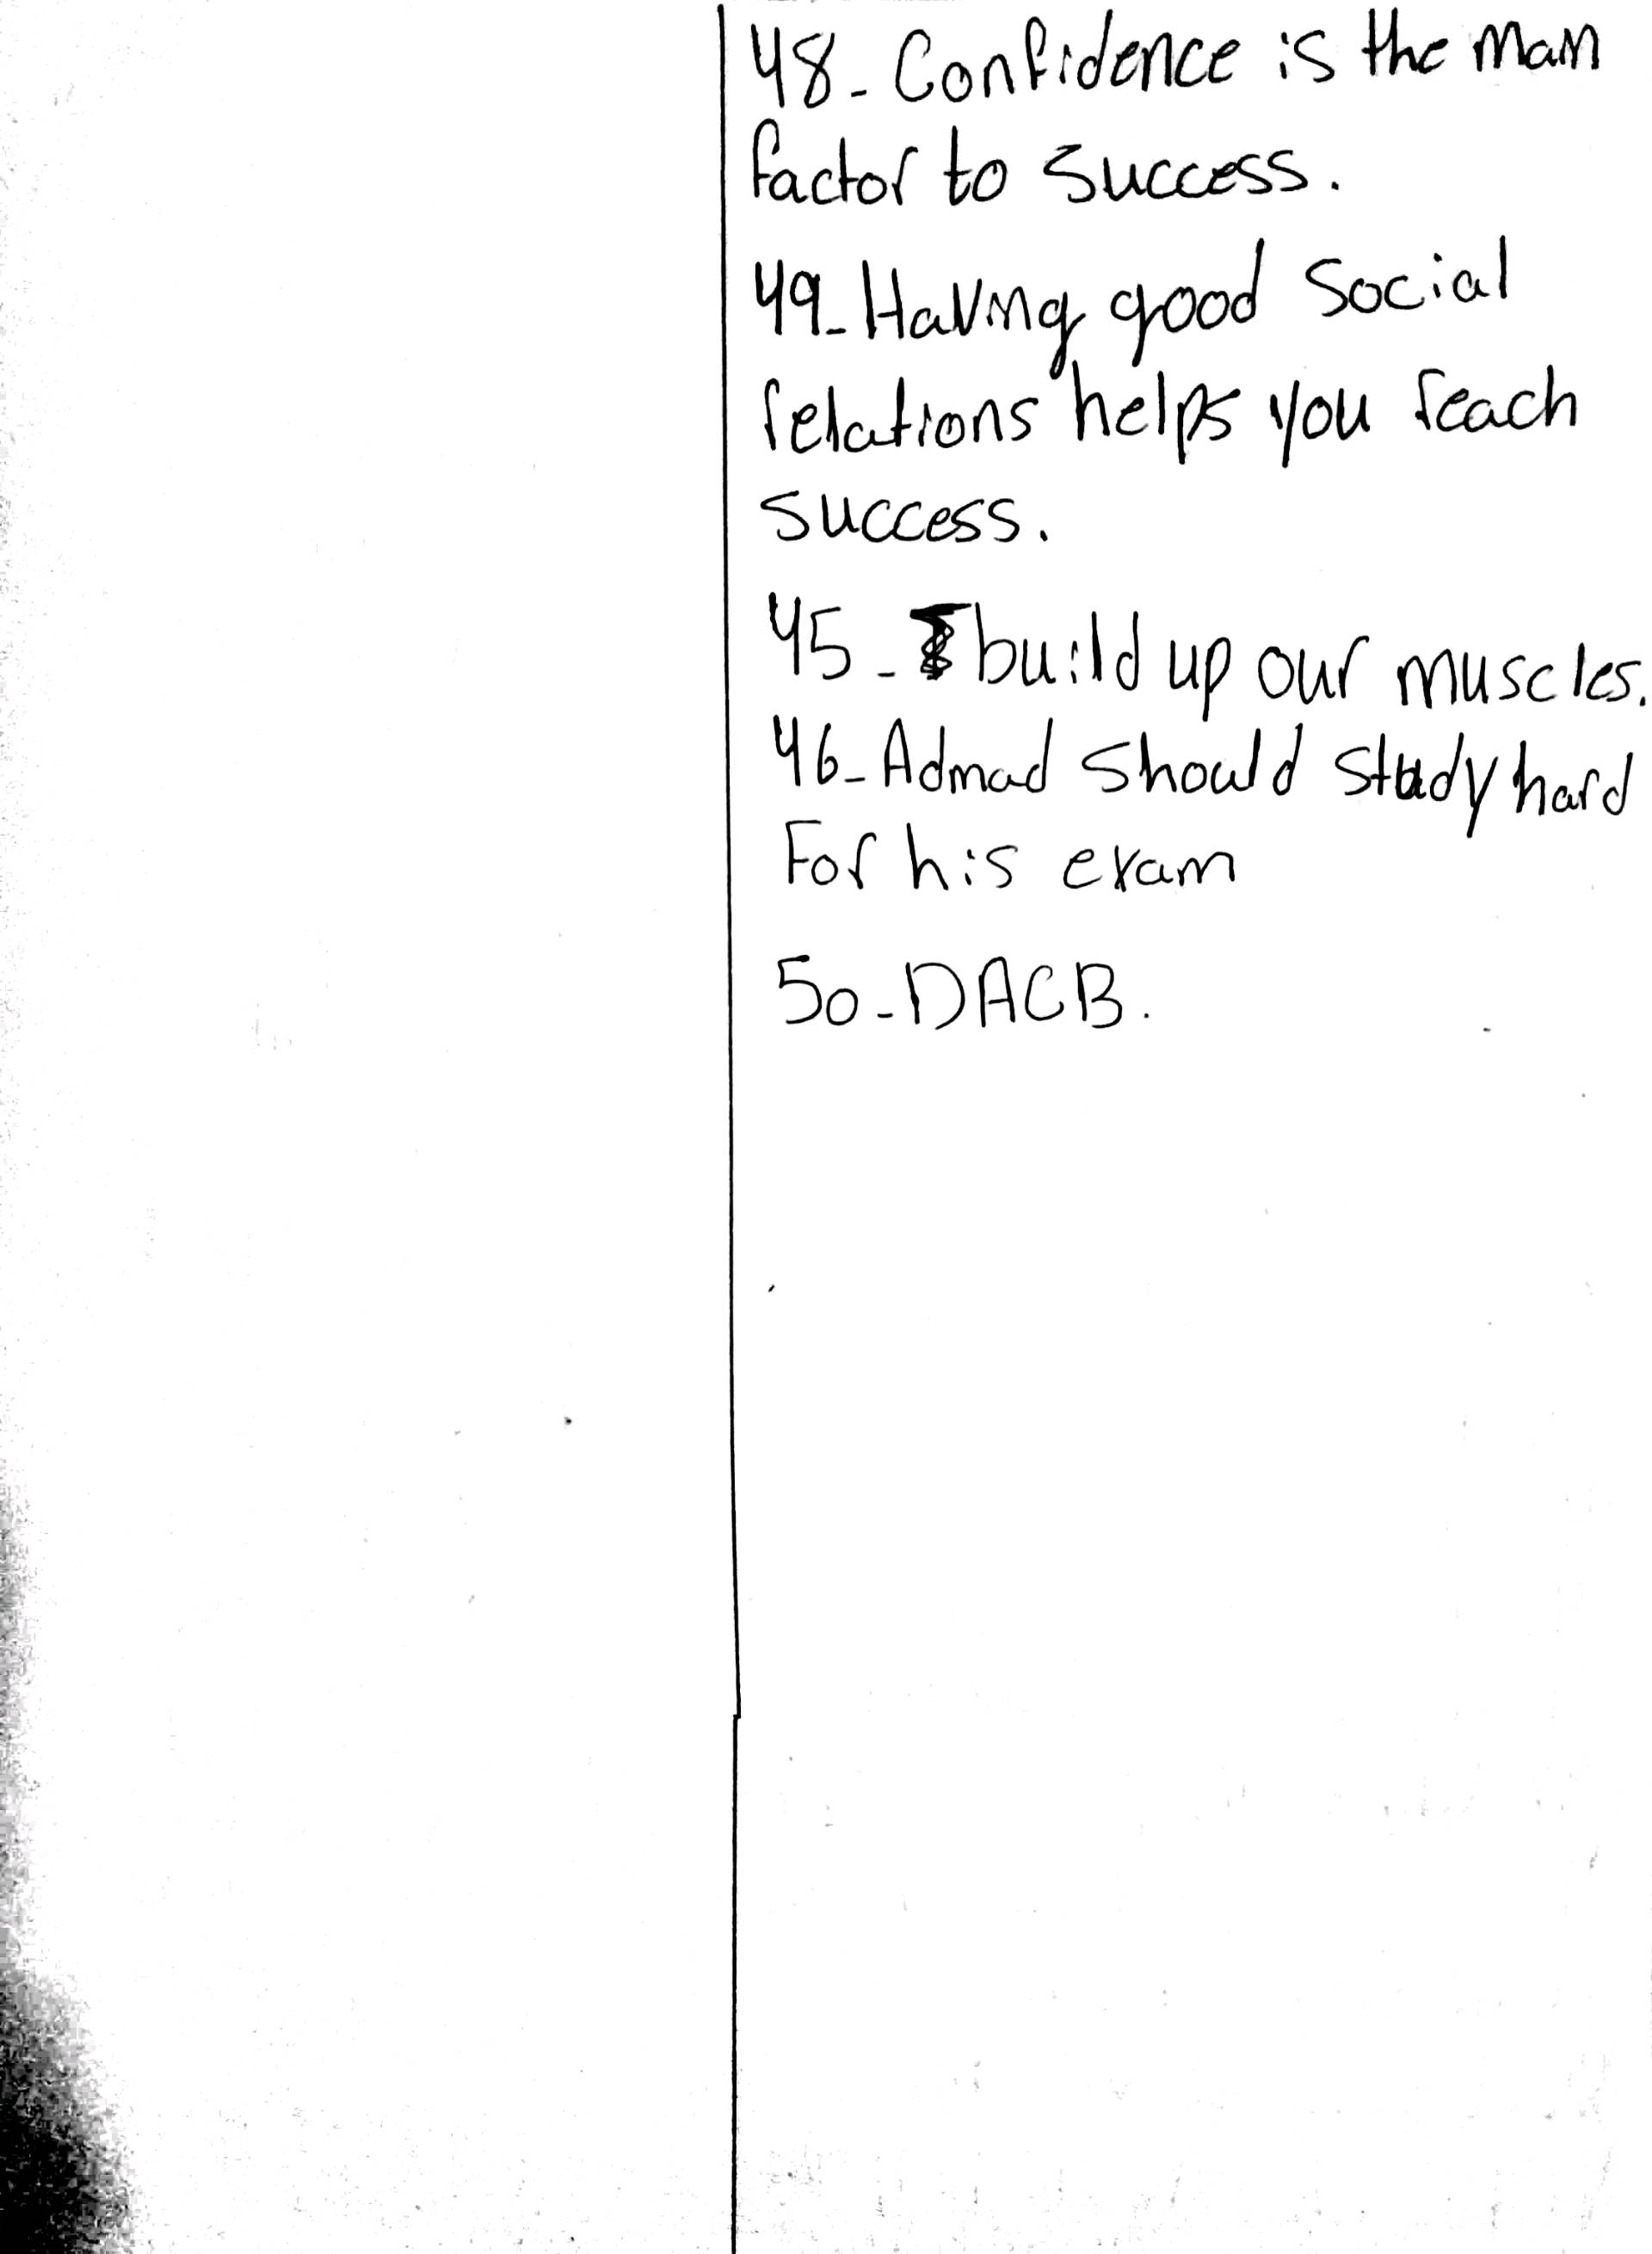 48- Confidence is the main
factor to success.
49- Having good social
relations helps you reach
success.
45- build up our muscles.
46- Admad should study hard
For his exam
50- DACB.